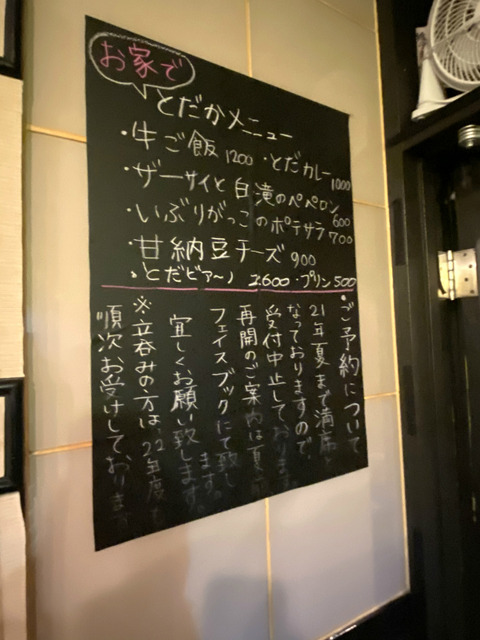 お家で
とだかメニュー
・牛ご飯 1200 ・とだカレー 1000
・ザーサイと白滝のペペロン 600
・いぶりがっこのポテサラ 700
・甘納豆チーズ 900
・とだビア〜ノ 2,600 ・プリン 500
・ご予約について
21年夏まで満席と
なっておりますので
受付中止しております。
再開のご案内は夏に
フェイスブックにて致し
ます。
宜しくお願い致します。
※立呑みの方は、22年度も
順次お受けしております